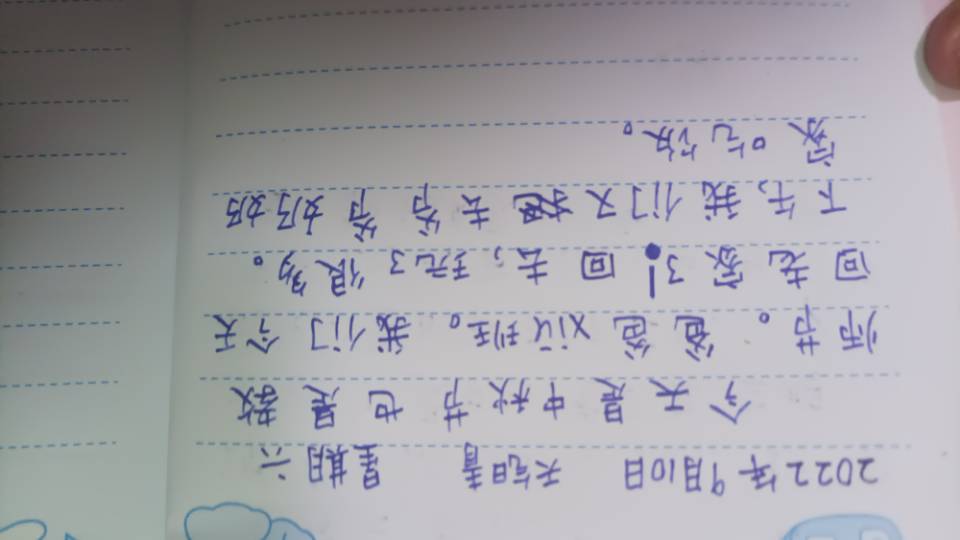 2022年9月10日 天气晴 星期六
今天是中秋节也是教
师节。爸爸xiū班。我们今天
回老家了!回去,玩了很多。
下午,我们又去爷爷奶奶
家吃饭。